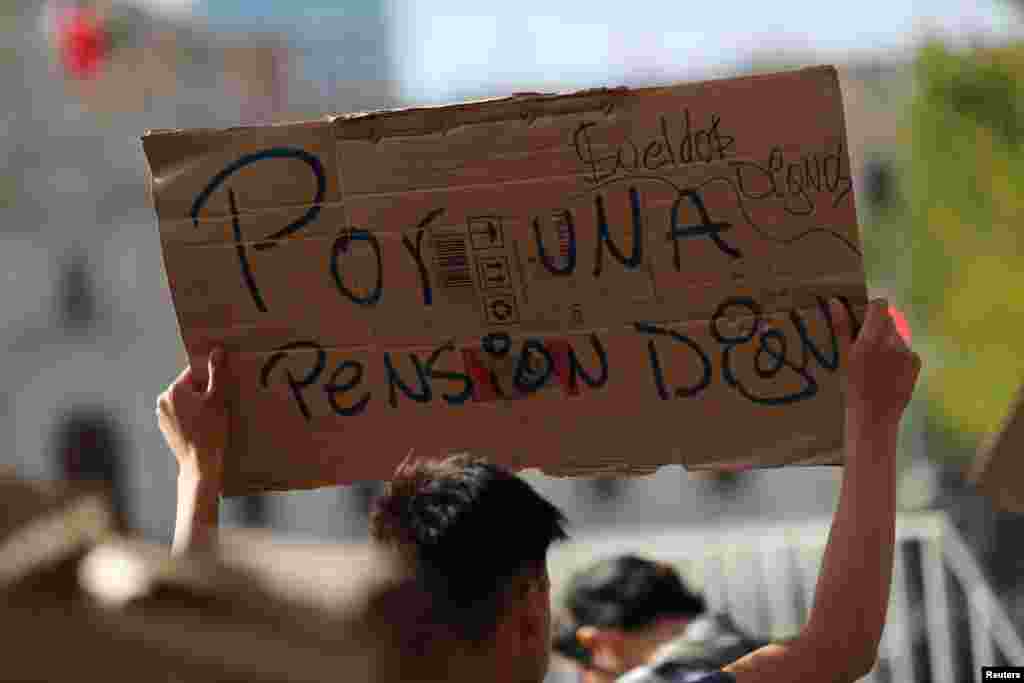 Sueldos Dignos
Por una
Pension Digna
Reuters